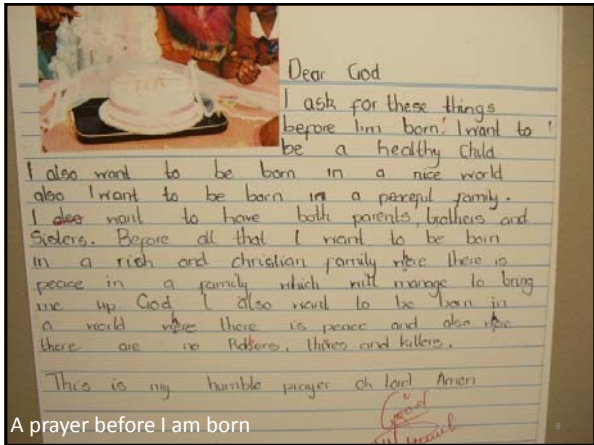 Dear God
I ask for these things
before I'm born! I want to
be a healthy child
I also want to be born in a nice world
also I want to be born in a peaceful family.
I also want to have both parents, brothers and
Sisters. Before all that I want to be born
in a rich and christian family where there is
peace in a family which will manage to bring
me up God I also want to be born in
a world where there is peace and also where
there are no Robbers, thives and killers.
This is my humble prayer oh lord Amen
Good
A prayer before I am born
8